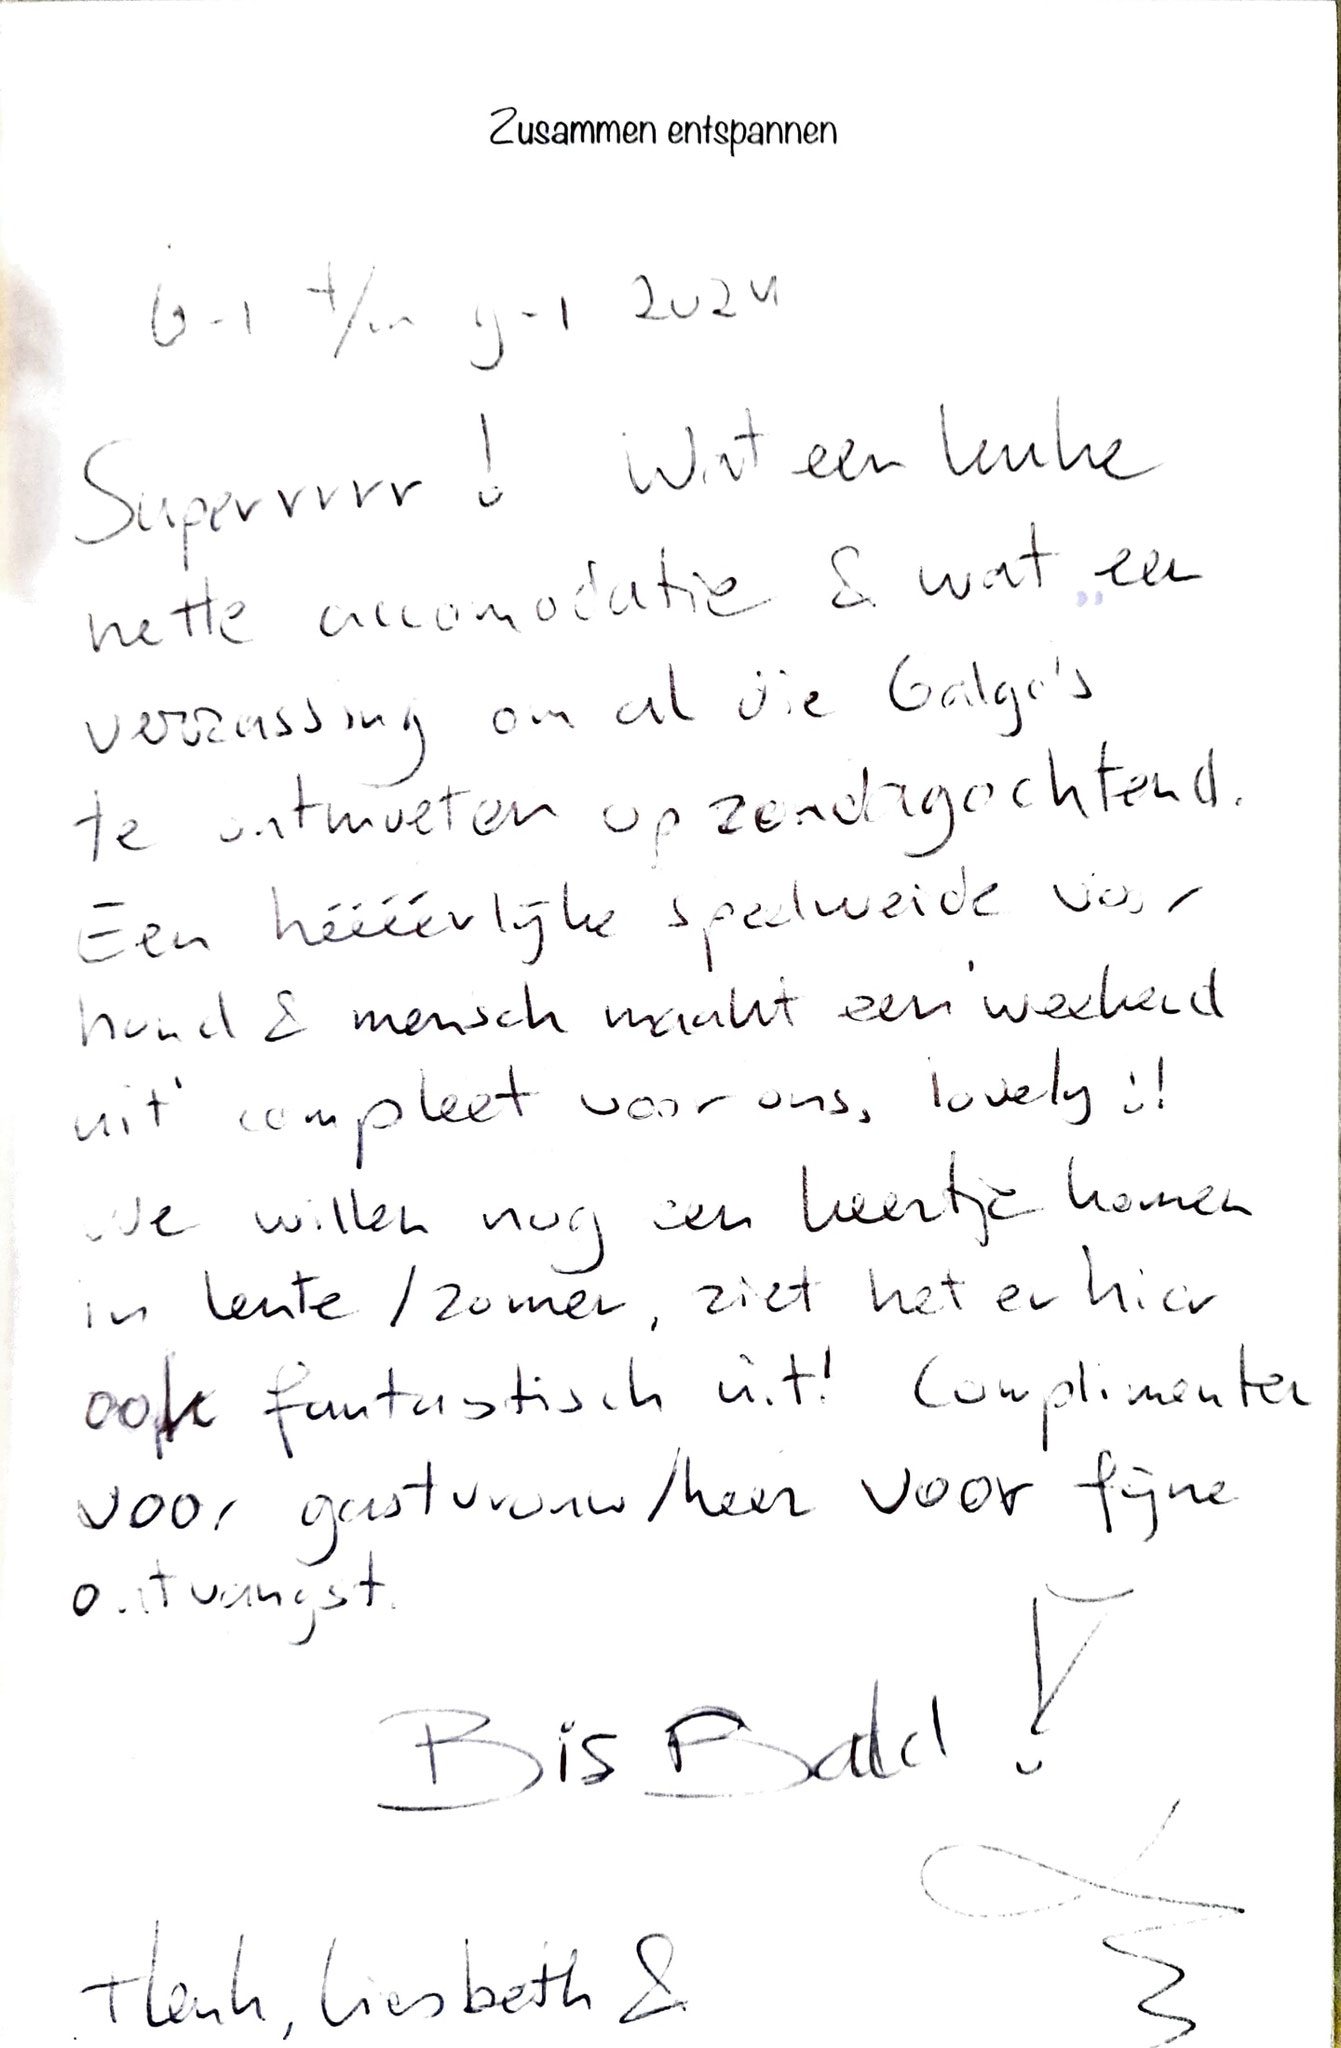 Zusammen entspannen
6-1 t/m 9-1 2024
Superrrrr! Wat een leuke
nette accomodatie & wat een
verrassing om al die Galgo's
te ontmoeten op zondagochtend.
Een héééérlijke speelweide voor
hond & mensch maakt een 'weekend
uit' compleet voor ons, lovely!!
We willen nog een keertje komen
in lente / zomer, ziet het er hier
ook fantastisch uit! Complimenten
voor gastvrouw/heer voor fijne
ontvangst.
Bis Bald!
Henk, Liesbeth &